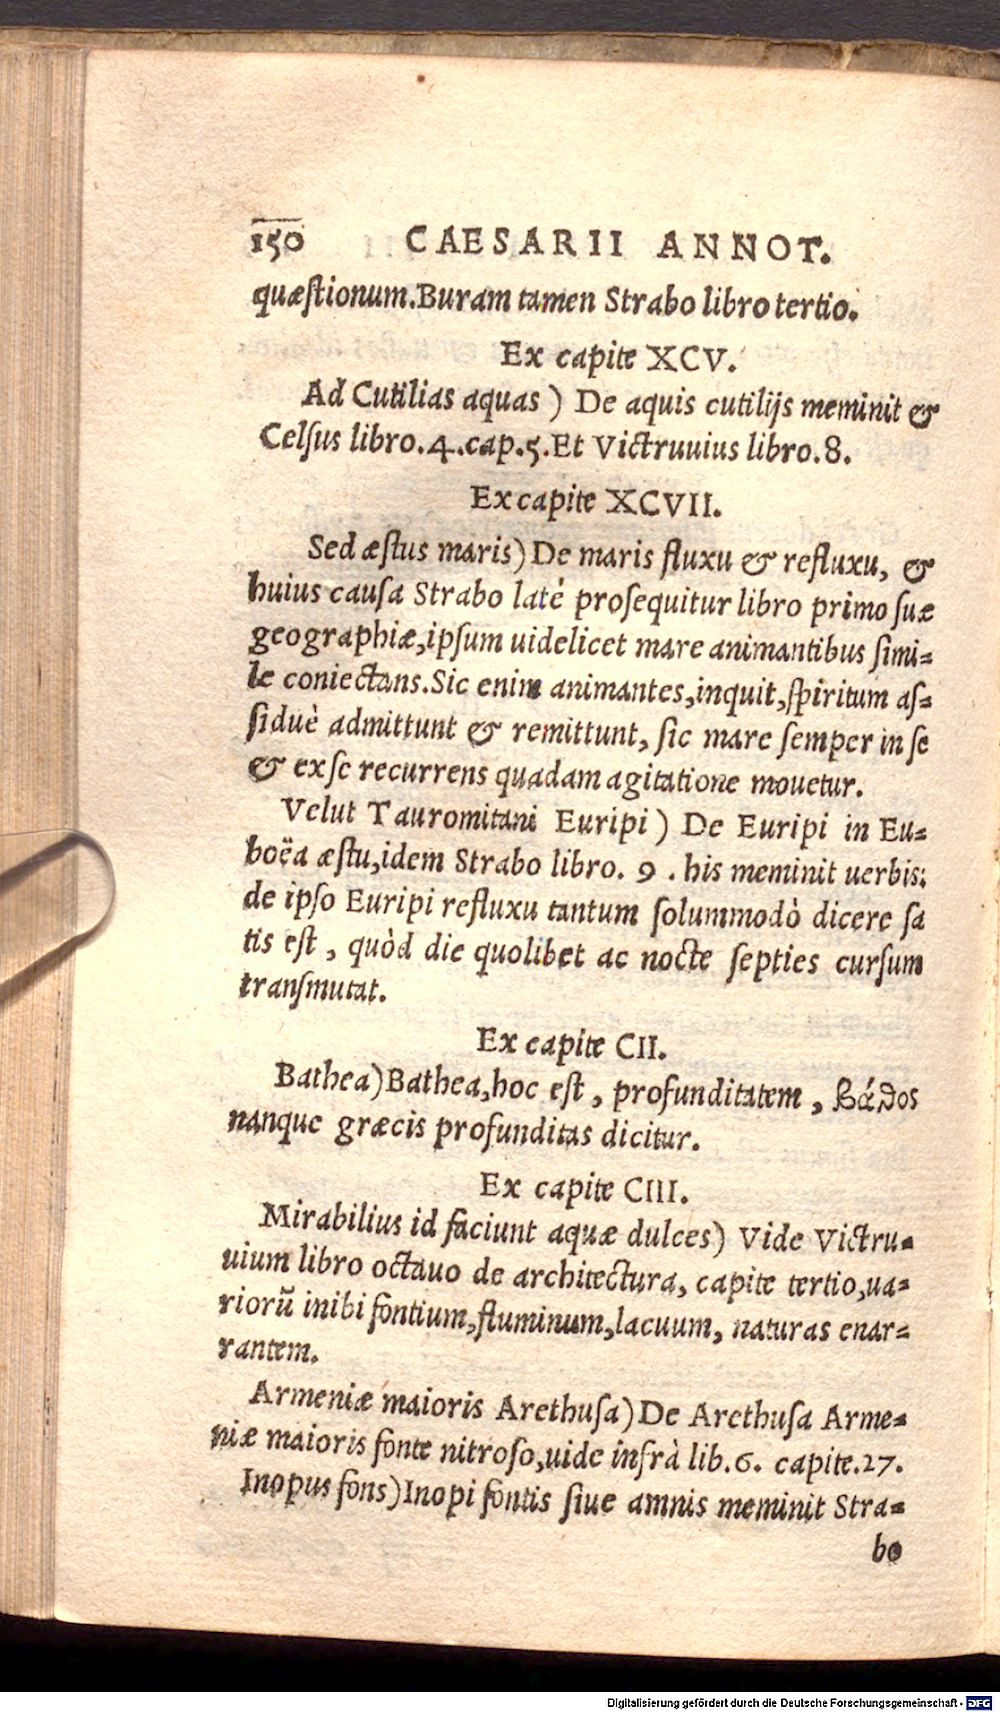 150 CAESARII ANNOT.
quæstionum.Buram tamen Strabo libro tertio.
Ex capite XCV.
Ad Cutilias aquas ) De aquis cutilijs meminit &
Celsus libro.4.cap.5.Et Victruuius libro.8.
Ex capite XCVII.
Sed æstus maris) De maris fluxu & refluxu, &
huius causa Strabo latè prosequitur libro primo suæ
geographiæ,ipsum uidelicet mare animantibus simi=
le coniectans.Sic enim animantes,inquit,spiritum as=
siduè admittunt & remittunt, sic mare semper in se
& ex se recurrens quadam agitatione mouetur.
Velut Tauromitani Euripi ) De Euripi in Eu=
boëa æstu,idem Strabo libro. 9 . his meminit uerbis:
de ipso Euripi refluxu tantum solummodò dicere sa
tis est , quòd die quolibet ac nocte septies cursum
transmutat.
Ex capite CII.
Bathea)Bathea,hoc est , profunditatem , βάθος
nanque græcis profunditas dicitur.
Ex capite CIII.
Mirabilius id faciunt aquæ dulces) Vide Victru=
uium libro octauo de architectura, capite tertio,ua=
riorũ inibi fontium,fluminum,lacuum, naturas enar=
rantem.
Armeniæ maioris Arethusa)De Arethusa Arme=
niæ maioris fonte nitroso,uide infrà lib.6. capite.27.
Inopus fons)Inopi fontis siue amnis meminit Stra=
bo
Digitalisierung gefördert durch die Deutsche Forschungsgemeinschaft - DFG